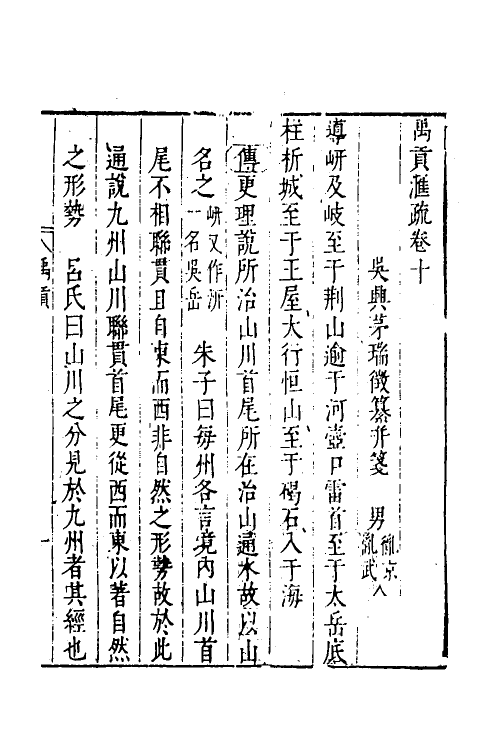 禹貢滙疏卷十
吳興茅瑞徵纂并箋 男 胤京 胤武 仝
導岍及岐至于荆山逾于河壺口雷首至于太岳底
柱析城至于王屋太行恒山至于碣石入于海
傳更理說所治山川首尾所在治山通水故以山
名之 岍又作汧 一名吳岳 朱子曰每州各言境內山川首
尾不相聯貫且自東而西非自然之形勢故於此
通說九州山川聯貫首尾更從西而東以著自然
之形勢 呂氏曰山川之分見於九州者其經也
禹貢 一